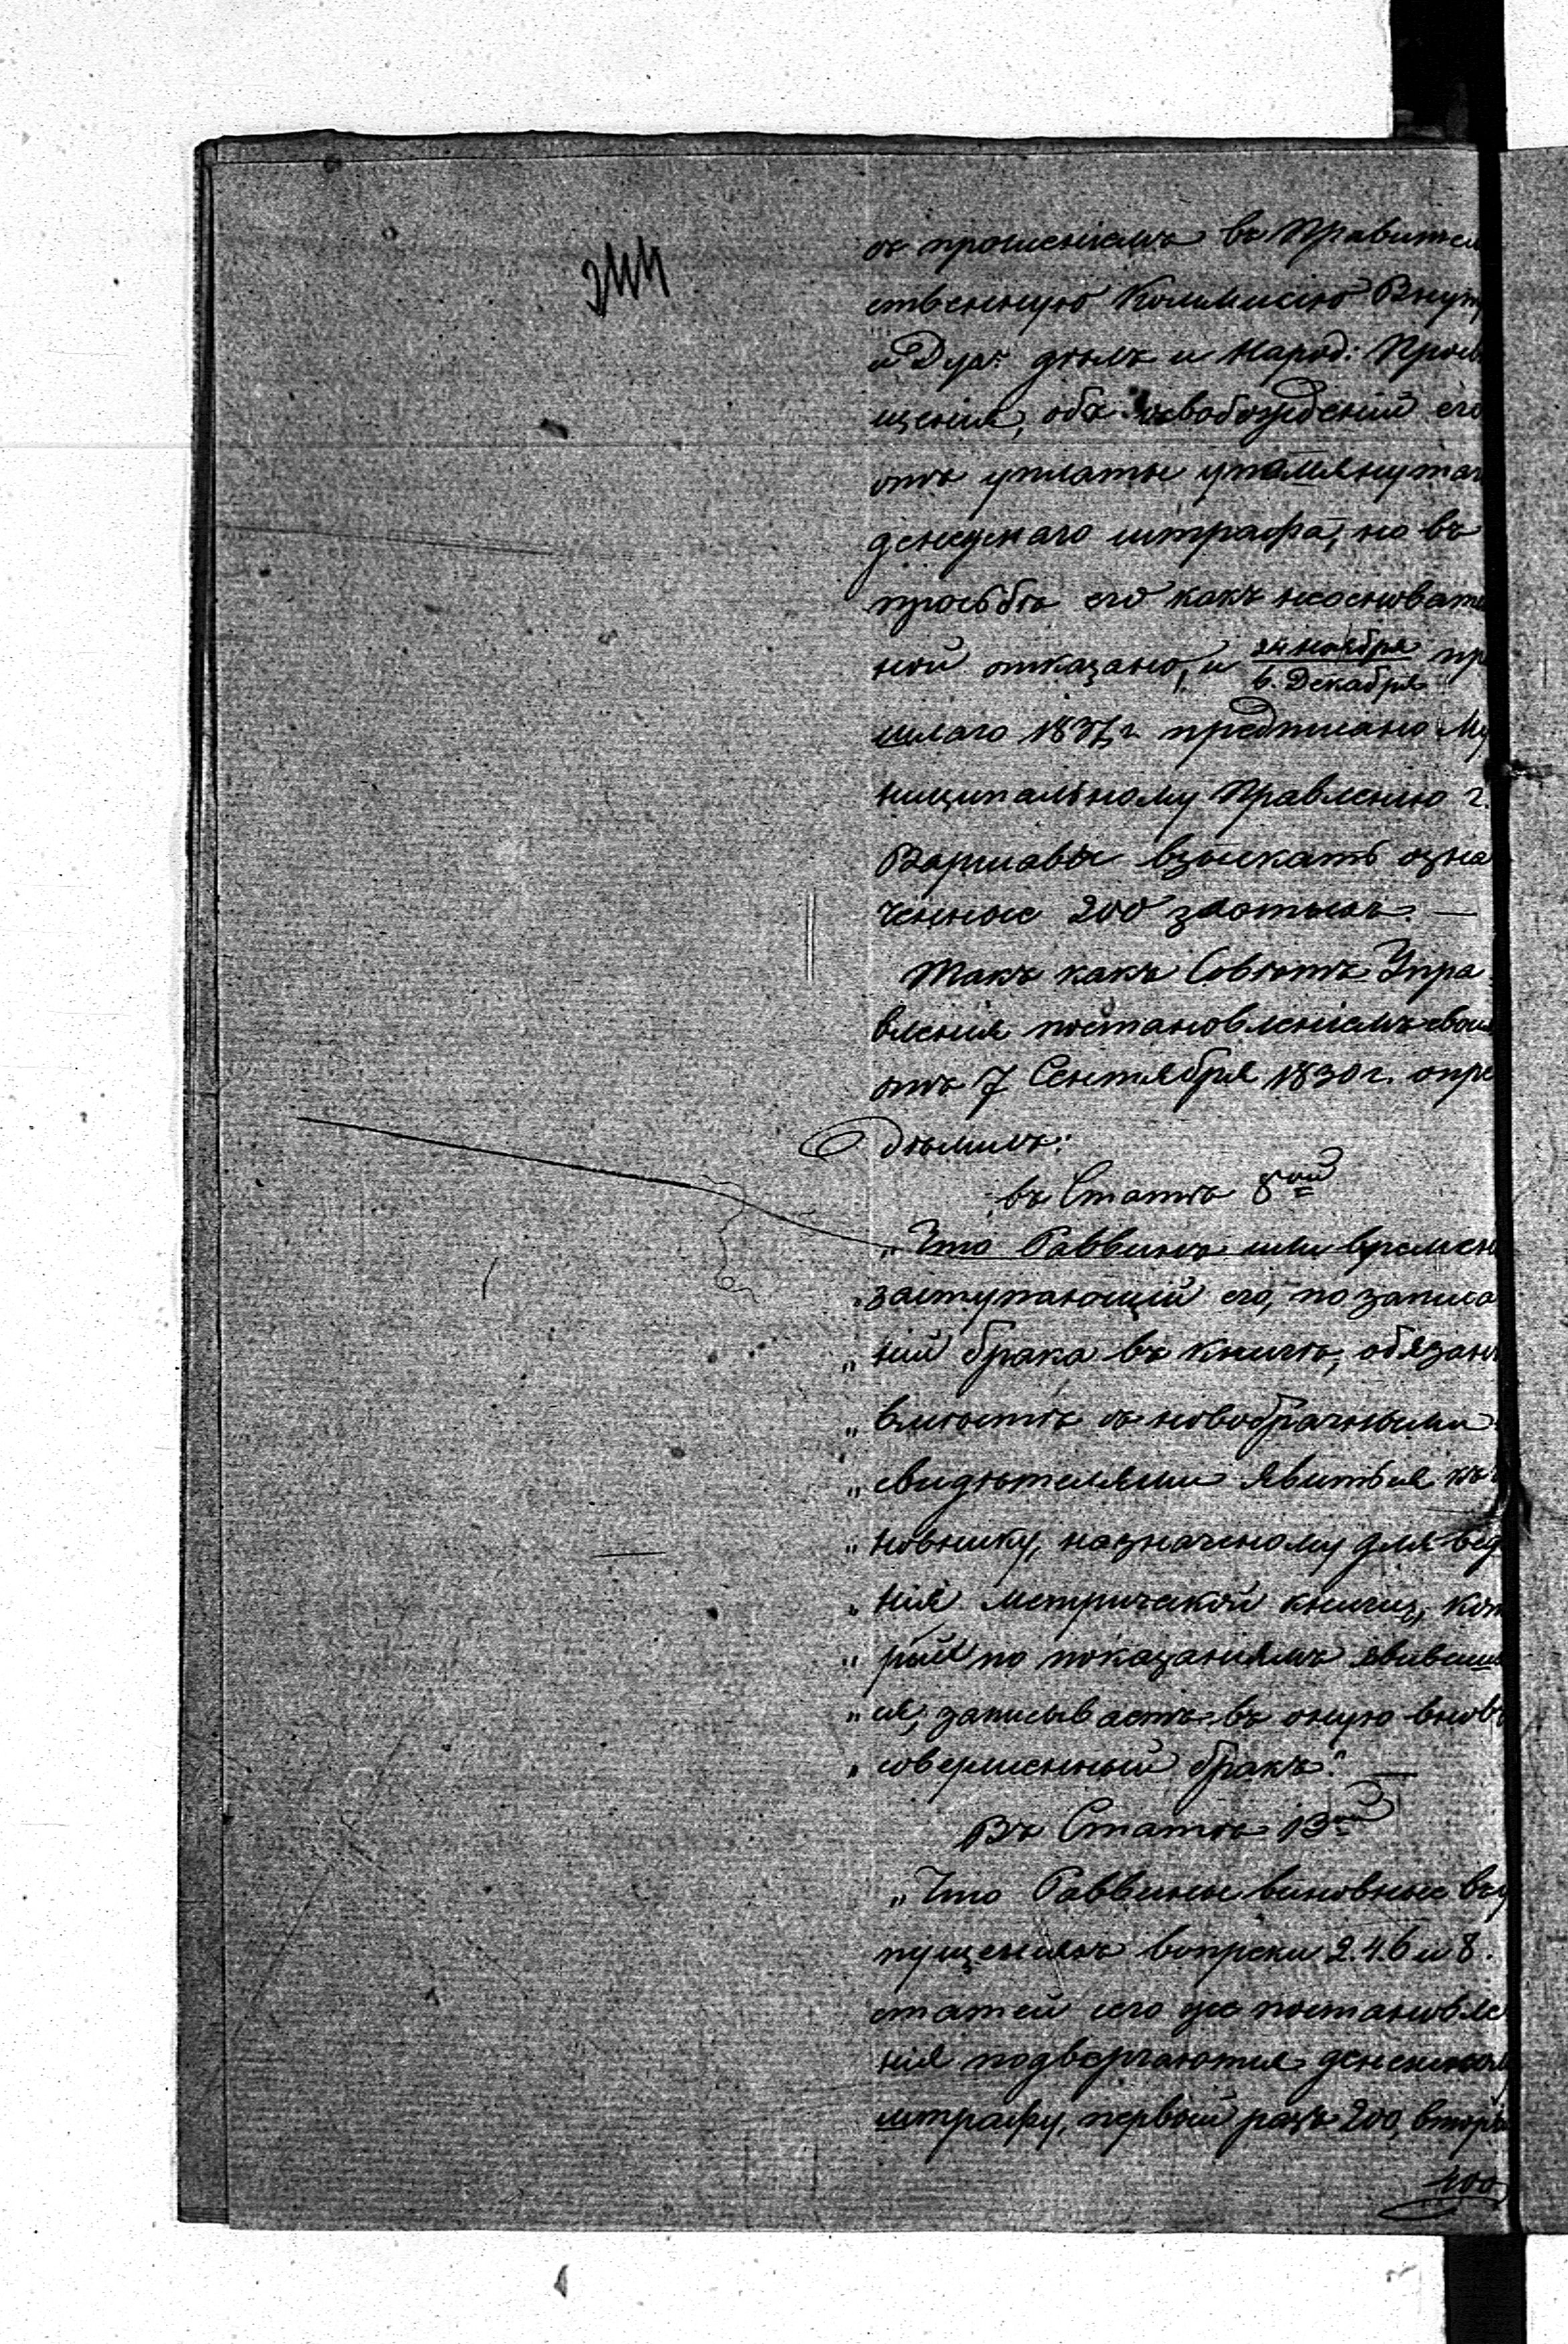 244
съ прошеніемъ въ Правител
ственную Коммисію Внутр
и Дух: дѣлъ и Народ: Просв
щенія, объ освобожденіи его
отъ уплаты упомянутаг
денежнаго штрафа, но въ
просьбѣ его какъ неосновате
ной отказано, и 24 Ноября / 6. Декабря пр
шлаго 1837 г. предписано Му
ниципальному Правленію г.
Варшавы взыскать озна
ченные 200 злотыхъ. —
Такъ какъ Совѣтъ Упра
вленія постановленіемъ свои
отъ 7 Сентября 1830 г. опре
дѣлилъ:
въ Статьѣ 8ой
„Что Раввинъ или времен
„заступающій его, по записа
„ніи брака въ книгѣ, обязан
„вмѣстѣ съ новобрачными
„свидѣтелями явиться къ
„новнику, назначеному для вед
„нія метрической книги, кот
„рый по показаніямъ явивши
„ся, записываетъ въ оную вновь
„совершенный бракъ." —
Въ Статьѣ 13ой
„Что Раввины виновные въ у
пущеніяхъ вопреки 2. 4. 6 и 8.
статей сего же постановле
нія подвергаются денежном
штрафу, первый разъ 200, вторы
400